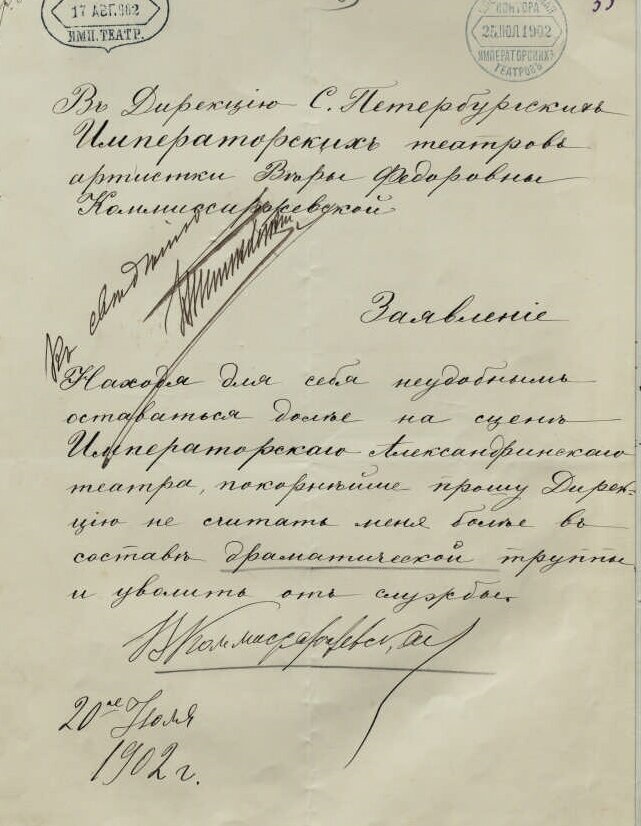 17 АВГ. 902
ИМП. ТЕАТР.
КОНТОРА
25 ІЮЛ 1902
ИМПЕРАТОРСКИХЪ
ТЕАТРОВЪ
Въ Дирекцію С. Петербургскихъ
Императорскихъ театровъ
артистки Вѣры Федоровны
Коммиссаржевской
Заявленіе
Находя для себя неудобнымъ
оставаться долѣе на сценѣ
Императорскаго Александринскаго
театра, покорнѣйше прошу Дирек-
цію не считать меня болѣе въ
составѣ драматической труппы
и уволить отъ службы.
В Коммиссаржевская
20го Іюля
1902 г.